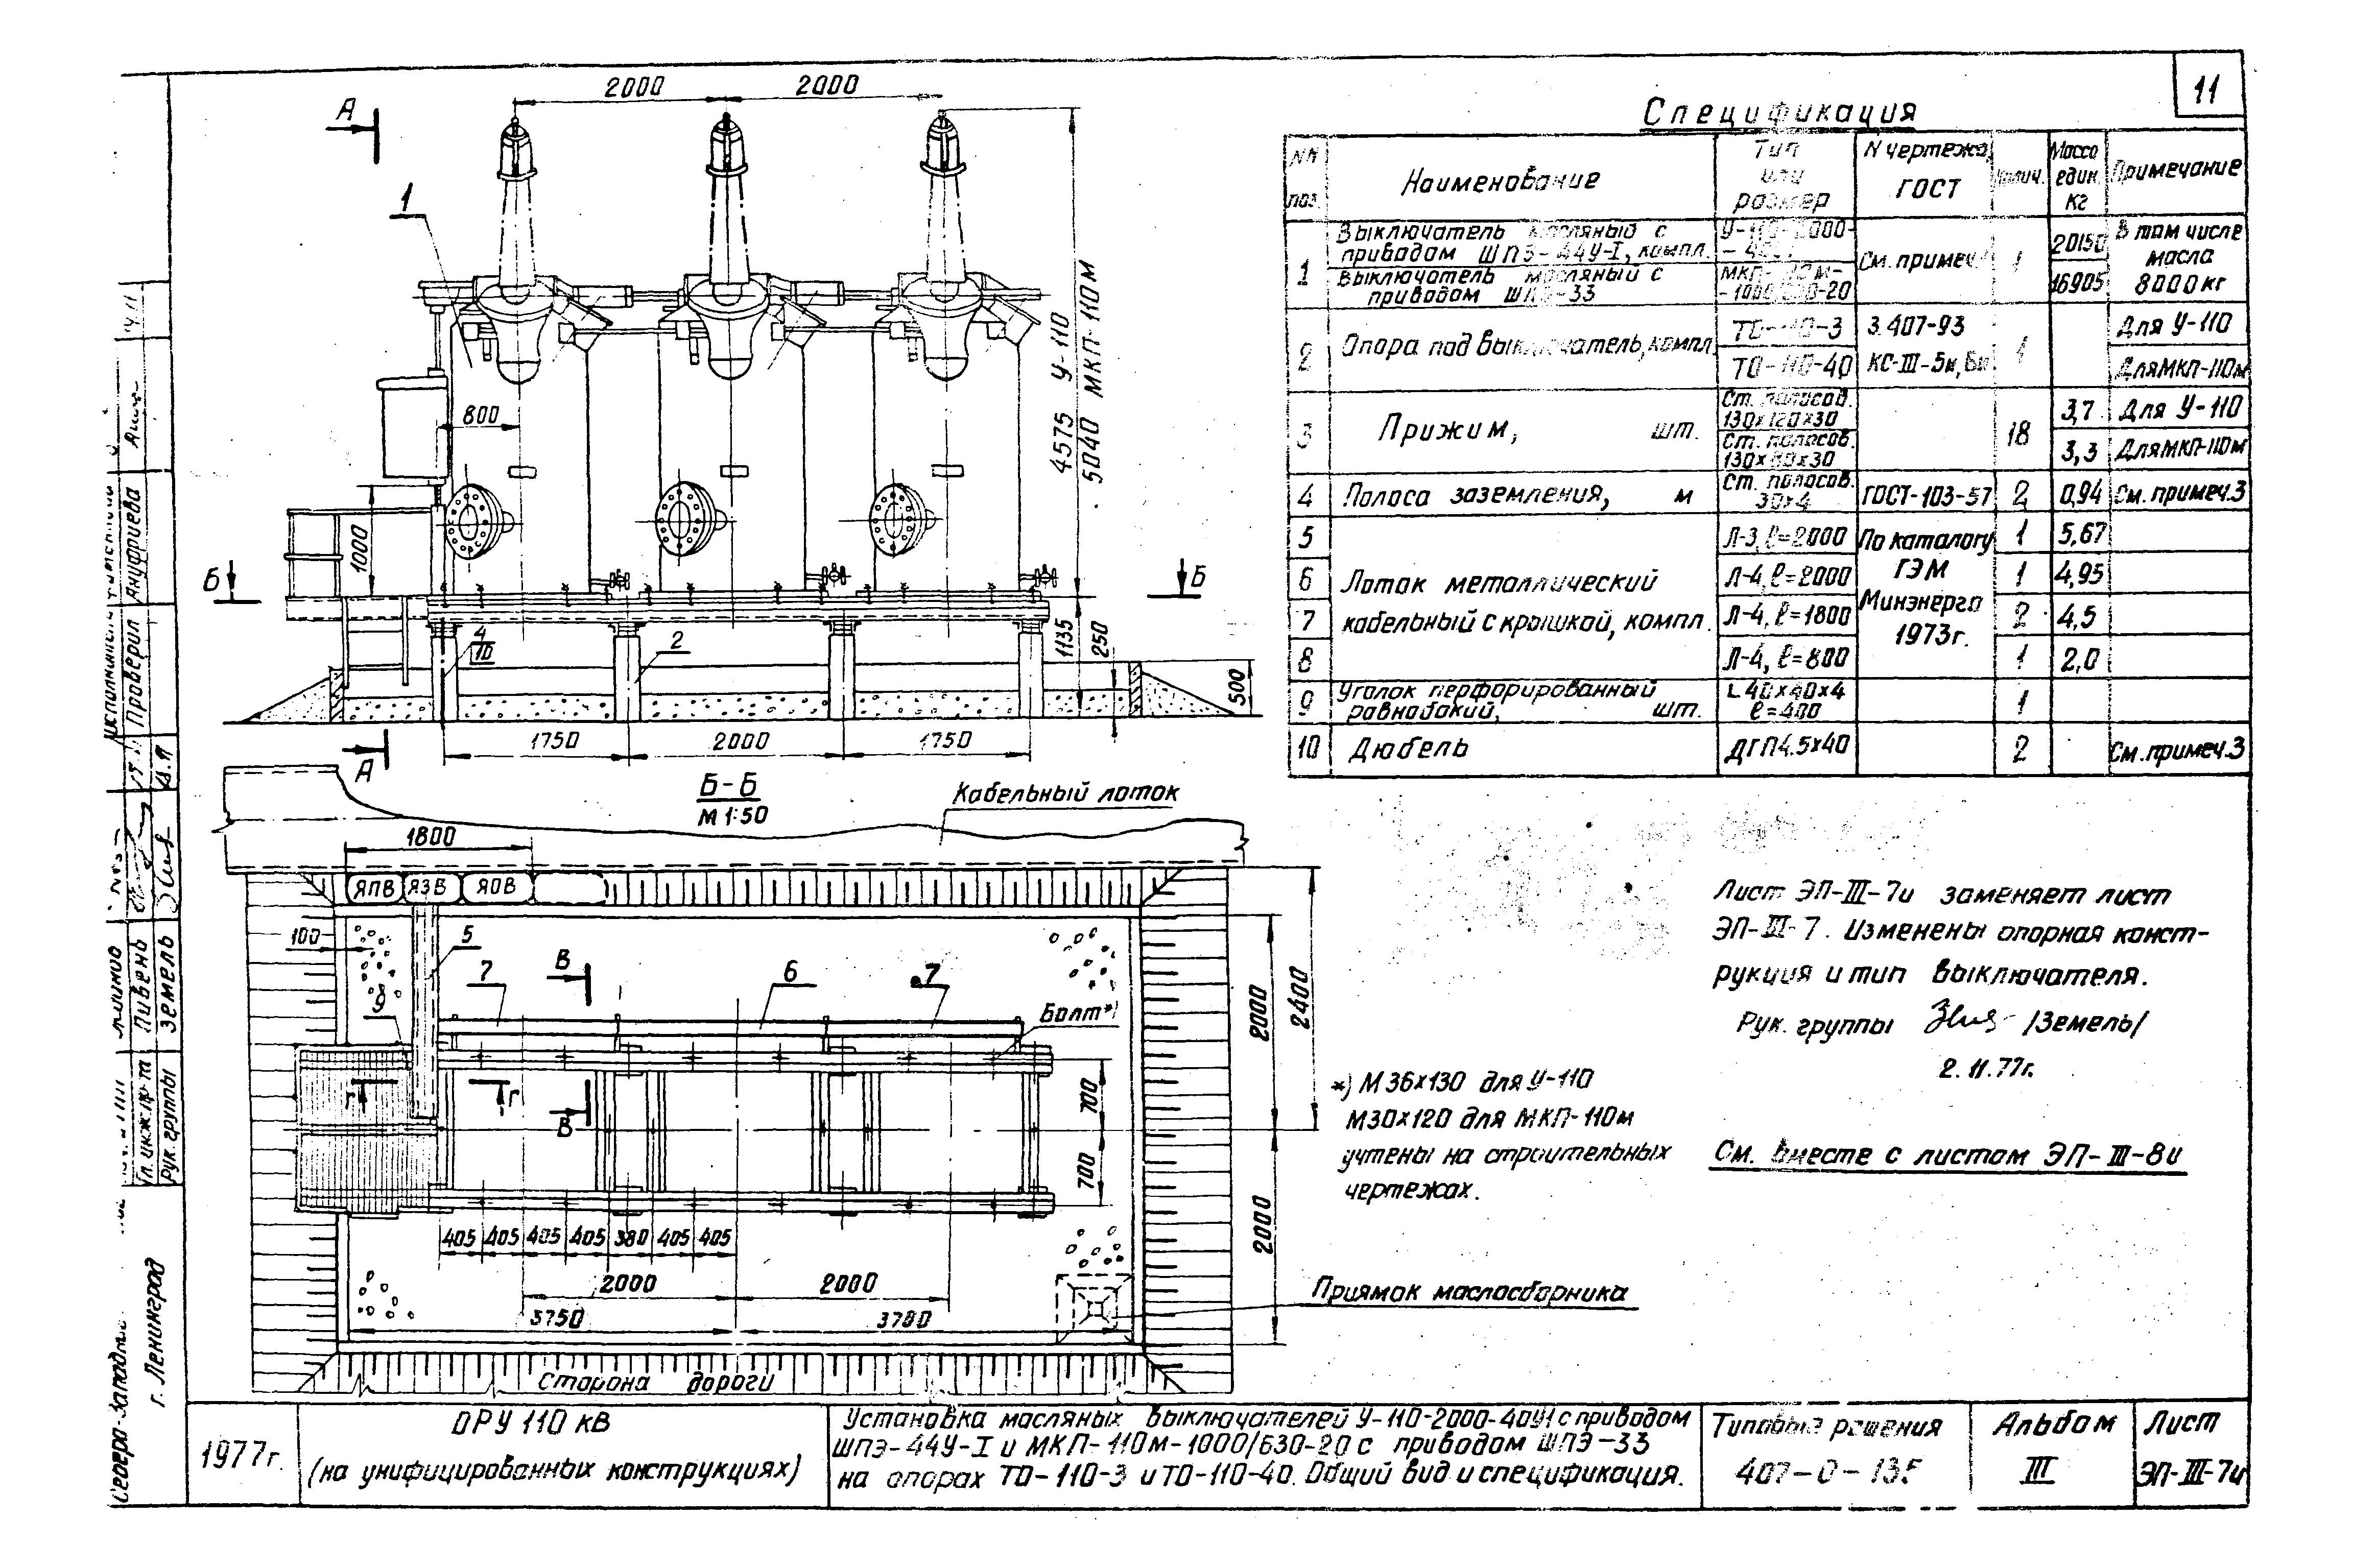 11
Спецификация
NN поз.
Наименование
Тип или размер
N чертежа, ГОСТ
Колич.
Масса един. кг
Примечание
1
Выключатель масляный с
приводом ШПЭ-44У-I, компл.
У-110-2000-
См. примеч.
1
20150
В том числе
масла
8000кг
Выключатель масляный с
приводом ШПЭ-33
МКП-110м-
-1000/630-20
16905
2
Опора под выключатель, компл.
ТО-110-3
3.407-93
1
Для У-110
ТО-110-40
КС-III-5и,
Для МКП-110м
3
Прижим, шт.
Ст. полосов.
130×120×30
18
3,7
Для У-110
Ст. полосов.
3,3
Для МКП-110м
4
Полоса заземления, м
Ст. полосов.
30×4
ГОСТ-103-57
2
0,94
См. примеч.3
5
Л-3, ℓ=2000
По каталогу
ГЭМ
Минэнерго
1973г.
1
5,67
6
Лоток металлический
Л-4, ℓ=2000
1
4,95
7
кабельный с крышкой, компл.
Л-4, ℓ=1800
2
4,5
8
Л-4, ℓ=800
1
2,0
9
Уголок перфорированный
равнобокий, шт.
L 40×40×4
ℓ=400
1
10
Дюбель
ДГП4.5×40
2
См. примеч.3
2000
2000
А
1
4575 У-110
5040 МКП-110м
800
1000
Б
Б
4
10
2
1135
250
500
1750
2000
1750
А
Б-Б
М 1:50
Кабельный лоток
1800
ЯПВ
ЯЗВ
ЯОВ
100
5
9
7
В
6
7
Болт*)
Г
Г
В
700
700
2000
2400
2000
405 405 405 405 380 405 405
2000
2000
3750
3780
Приямок маслосборника
Сторона дороги
*) М36×130 для У-110
М30×120 для МКП-110м
учтены на строительных
чертежах.
Лист ЭП-III-7и заменяет лист
ЭП-III-7. Изменены опорная конст-
рукция и тип выключателя.
Рук. группы /Земель/
2.11.77г.
См. вместе с листом ЭП-III-8и
Проверил
Ануфриева
Гл. инж. пр-та
Пивень
Рук. группы
Земель
г. Ленинград
1977г.
ОРУ 110 кВ
(на унифицированных конструкциях)
Установка масляных выключателей У-110-2000-40У1 с приводом
ШПЭ-44У-I и МКП-110м-1000/630-20 с приводом ШПЭ-33
на опорах ТО-110-3 и ТО-110-40. Общий вид и спецификация.
Типовые решения
407-0-135
Альбом
III
Лист
ЭП-III-7и